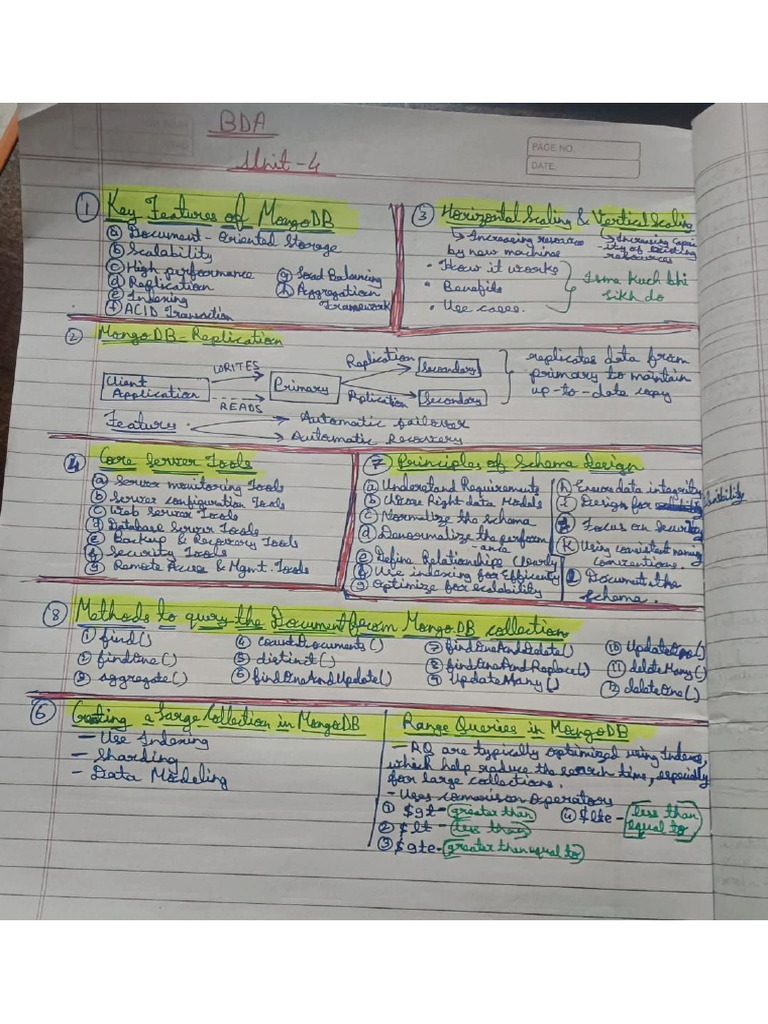 BDA
Unit-4
PAGE NO.
DATE:
① Key Features of MongoDB
ⓐ Document-Oriented Storage
ⓑ Scalability
ⓒ High performance
ⓓ Replication
ⓔ Indexing
ⓕ ACID Transaction
ⓖ Load Balancing
ⓗ Aggregation
Framework
③ Horizontal Scaling & Vertical Scaling
↳ Increasing resources
by new machine
↳ Increasing capac
-ity of existing
resources
• How it works
• Benefits
• Use cases.
Isme kuch bhi
likh do
② MongoDB-Replication
Client
Application
WRITES
READS
Primary
Replication
Secondary
Replication
Secondary
replicates data from
primary to maintain
up-to-date copy
Features
→ Automatic failover
→ Automatic Recovery
④ Core Server Tools
ⓐ Server monitoring Tools
ⓑ Server configuration Tools
ⓒ Web Server Tools
ⓓ Database Server Tools
ⓔ Backup & Recovery Tools
ⓕ Security Tools
ⓖ Remote Access & Mgmt. Tools
⑦ Principles of Schema Design
ⓐ Understand Requirements
ⓑ Choose Right data Models
ⓒ Normalize the schema
ⓓ Denormalize the perform
-ance
ⓔ Define Relationships clearly
ⓕ Use indexing for Efficiency
ⓖ Optimize for scalability
ⓗ Ensure data integrity
ⓘ Design for
Focus on Security
ⓚ Using consistent naming
conventions.
ⓛ Document the
schema.
⑧ Methods to query the Document from MongoDB collection
① find()
② findOne()
③ aggregate()
④ countDocuments()
⑤ distinit()
⑥ findOneAndUpdate()
⑦ findOneAndDelete()
⑧ findOneAndReplace()
⑨ UpdateMany()
⑩ UpdateOne()
⑪ deleteMany()
⑫ deleteOne()
⑥ Creating a Large Collection in MongoDB
— Use Indexing
— Sharding
— Data Modeling
Range Queries in MongoDB
— RQ are typically optimized using Indexes,
which help reduce the search time, especially
for large collections.
— Uses comarison operators
① $gt - greater than
② $lt - less than
③ $gte - greater than equal to
④ $lte - less than
equal to